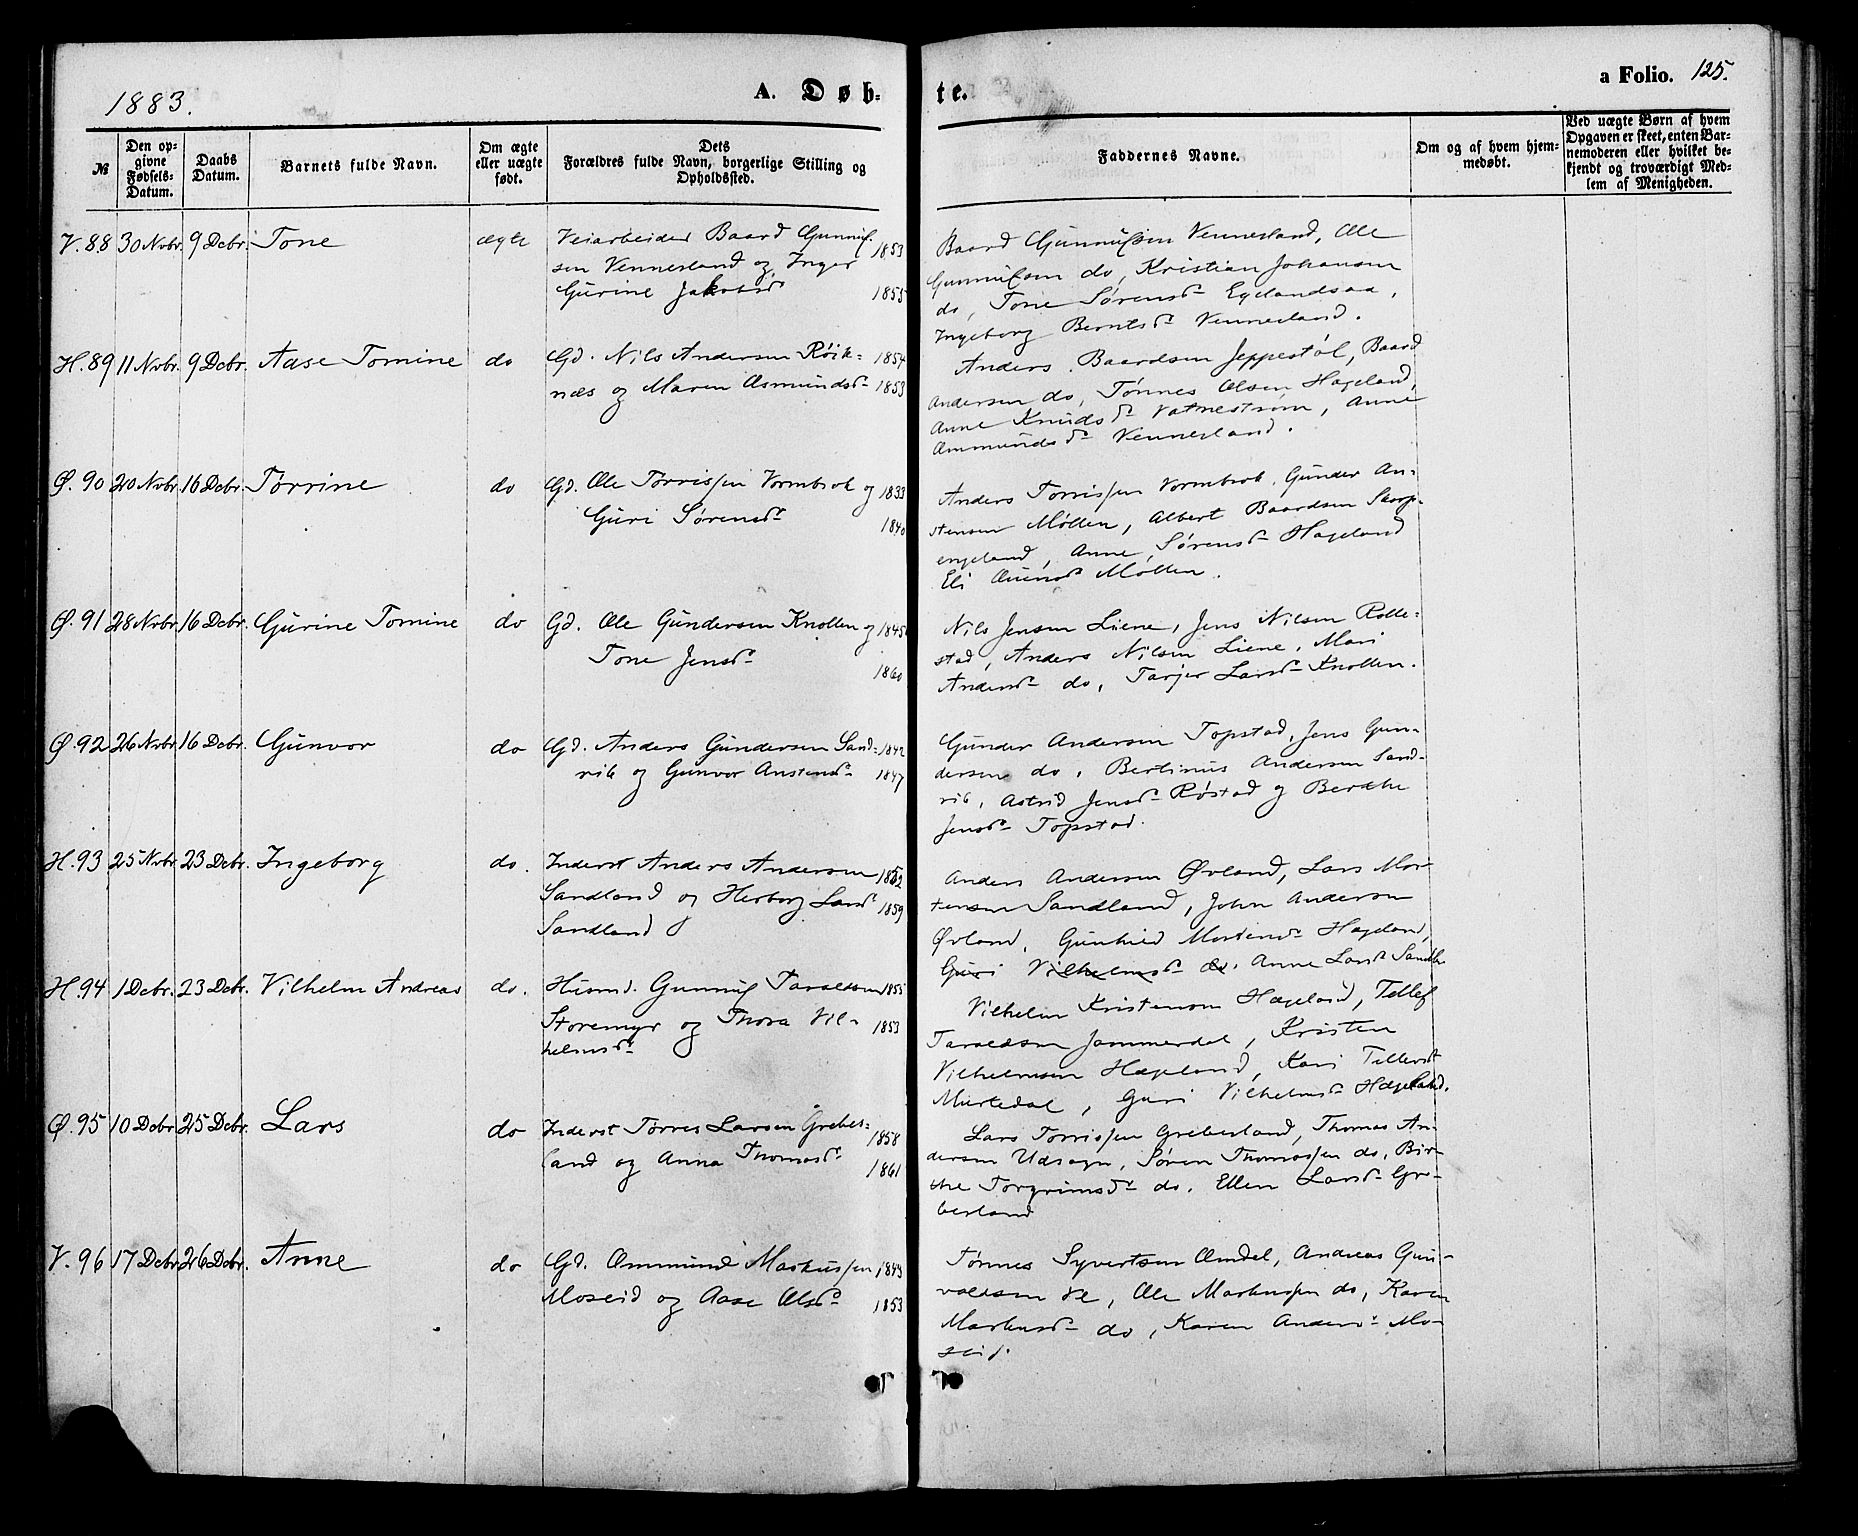 1883.
A. Døb-
te.
a Folio. 125.
№
Den op-
givne
Fødsels-
Datum.
Daabs
Datum.
Barnets fulde Navn.
Om ægte
eller uægte
født.
Dets
Forældres fulde Navn, borgerlige Stilling og
Opholdssted.
Faddernes Navne.
Om og af hvem hjem-
medøbt.
Ved uægte Børn af hvem
Opgaven er skeet, enten Bar-
nemoderen eller hvilket be-
kjendt og troværdigt Med-
lem af Menigheden.
V. 88 30 Nvbr. 9 Dcbr. Tone ægte
Veiarbeider Baard Gunnuf- 1853
sen Vennesland og Inger
Gurine Jakobsd 1855
Baard Gunnufsen Vennesland, Ole
Gunnufsen do, Kristian Johansen
do, Tone Sørensd Egelandsaa,
Ingeborg Berntsd Vennesland.
H. 89 11 Nvbr. 9 Dcbr. Aase Tomine do
Gd. Nils Andersen Røik- 1854
næs og Maren Osmundsd 1853
Anders Baardsen Jeppestøl, Baard
Andersen do, Tønnes Olsen Hageland,
Anne Knudsd Vatnestrøm, Anne
Ommundsd Vennesland.
Ø. 90 20 Nvbr. 16 Dcbr. Torrine do
Gd. Ole Torrissen Vormbrok og 1833
Guri Sørensd 1840
Anders Torrissen Vormbrok, Gunder An-
stensen Møllen, Albert Baardsen Skarp-
engeland, Anne Sørensd Hageland
Eli Møllen.
Ø. 91 28 Nvbr. 16 Dcbr. Gurine Tomine do
Gd. Ole Gundersen Knollen og 1845
Tone Jensd 1860
Nils Jensen Liene, Jens Nilsen Rolle-
stad, Anders Nilsen Liene, Mari
Andersd do, Tarjer Larsd Knollen.
Ø. 92 26 Nvbr. 16 Dcbr. Gunvor do
Gd. Anders Gundersen Sand- 1842
vik og Gunvor Anstensd 1847
Gunder Andersen Topstad, Jens Gun-
dersen do, Bertinius Andersen Sand-
vik, Astrid Jensd Røstad og Berthe
Jensd Topstad.
H. 93 25 Nvbr. 23 Dcbr. Ingeborg do.
Inderst Anders Andersen 1852
Sandland og Herborg Larsd 1859
Sandland
Anders Andersen Øvland, Lars Mor-
tensen Sandland, John Andersen
Øvland, Gunhild Mortensd Hageland,
Guri Vilhelmsd do. Anne Larsd Sandl.
H. 94 1 Dcbr. 23 Dcbr. Vilhelm Andreas do.
Husmd. Gunnuf Taraldsen 1855
Storemyr og Thora Vil- 1853
helmsd
Vilhelm Kristensen Hægeland, Tellef
Taraldsen Jammerdal, Kristen
Vilhelmsen Hægeland, Kari Tellefsd
Murtedal, Guri Vilhelmsd Hægeland.
Ø. 95 10 Dcbr. 25 Dcbr. Lars do
Inderst Tørres Larsen Grebes- 1858
land og Anna Thomasd 1861
Lars Torrissen Greibesland, Thomas An-
dersen Udsogn, Søren Thomassen do, Bir-
the Torgrimsd do. Ellen Larsd Gre-
besland
V. 96 17 Dcbr. 26 Dcbr. Anne do
Gd. Ommund Markussen 1849
Moseid og Aase Olsd 1853
Tønnes Syvertsen Omdal, Andreas Gun-
valdsen do, Ole Markussen do, Karen
Markusd do, Karen Andersd Mo-
seid.